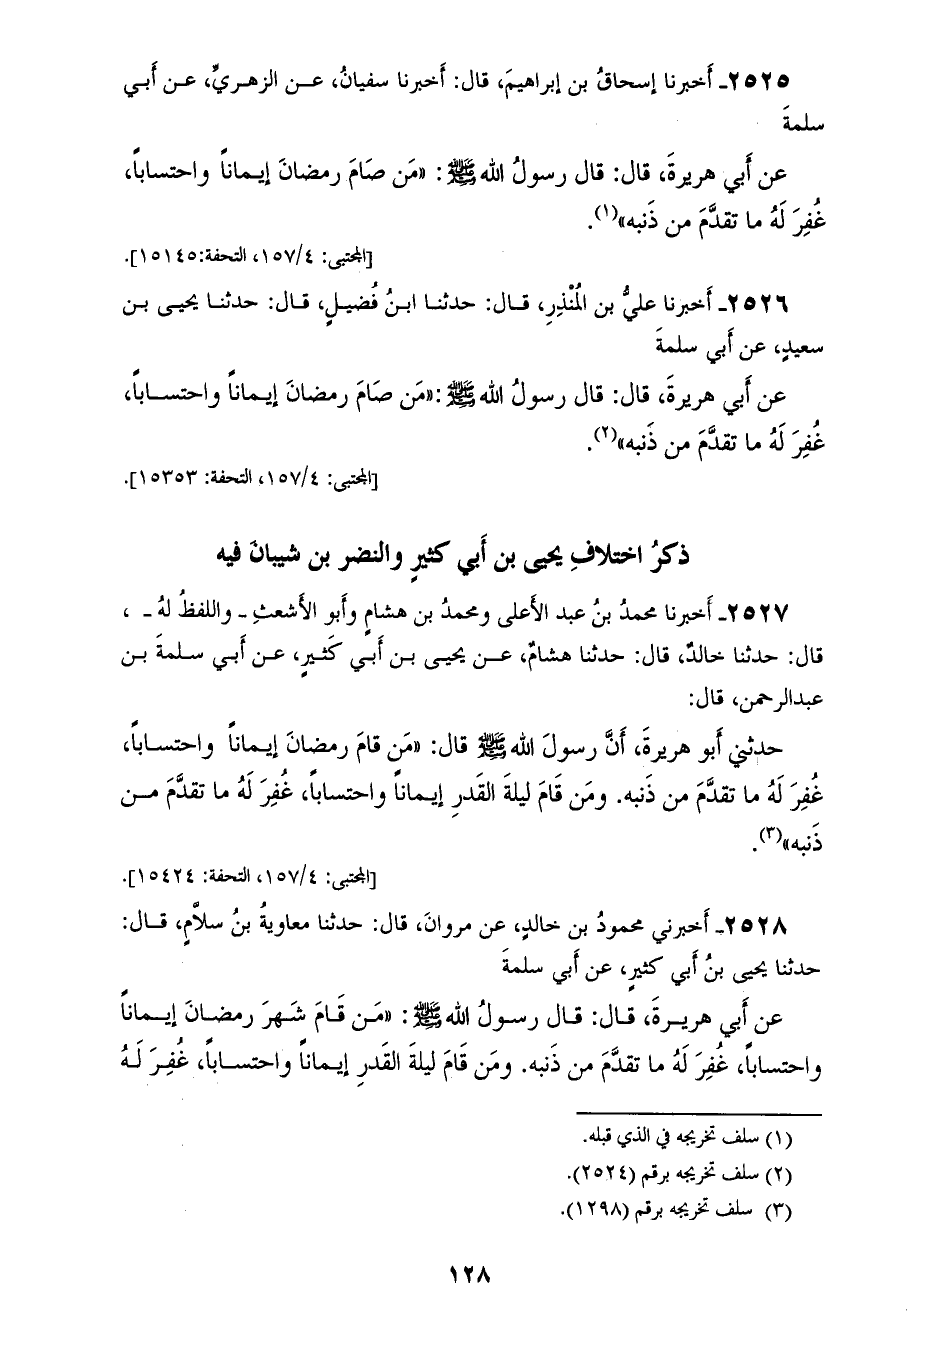 ٢٥٢٥ـ أخبرنا إسحاقُ بن إبراهيمَ، قال: أخبرنا سفيانُ، عـن الزهريِّ، عـن أَبـي
سلمةَ
عن أَبي هريرةَ، قال: قال رسولُ اللهﷺ: «مَن صَامَ رمضانَ إيـماناً واحتساباً،
غُفِرَ لَهُ ما تقدَّمَ من ذَنبه»(١).
[المجتبى: ١٥٧/٤، التحفة:١٥١٤٥].
٢٥٢٦ـ أخبرنا عليُّ بن المُنْذِرِ، قـال: حدثنـا ابـنُ فُضيـلٍ، قـال: حدثنـا يحيـى بـن
سعيدٍ، عن أَبي سلمةَ
عن أَبي هريرةَ، قال: قال رسولُ اللهﷺ:«مَن صَامَ رمضانَ إيـماناً واحتسـاباً،
غُفِرَ لَهُ ما تقدَّمَ من ذَنبه»(٢).
[المجتبى: ١٥٧/٤، التحفة: ١٥٣٥٣].
ذكرُ اختلافِ يحيى بن أَبي كثيرٍ والنضر بن شيبانَ فيه
٢٥٢٧ـ أخبرنا محمدُ بنُ عبد الأعلى ومحمدُ بن هشامٍ وأَبو الأَشعثِ ـ واللفظُ لهُ ـ ،
قال: حدثنا خالدٌ، قال: حدثنا هشامٌ، عـن يحيـى بـن أَبـي كَثـيرٍ، عـن أَبـي سـلمةَ بـن
عبدالرحمن، قال:
حدثني أَبو هريرةَ، أَنَّ رسولَ اللهﷺ قال: «مَن قامَ رمضانَ إيـماناً واحتسـاباً،
غُفِرَ لَهُ ما تقدَّمَ من ذَنبه. ومَن قَامَ ليلةَ القَدرِ إيـماناً واحتساباً، غُفِرَ لَهُ ما تقدَّمَ مـن
ذَنبه»(٣).
[المجتبى: ١٥٧/٤، التحفة: ١٥٤٢٤].
٢٥٢٨ـ أخبرني محمودُ بن خالدٍ، عن مروانَ، قال: حدثنا معاويةُ بنُ سلاَّمٍ، قـال:
حدثنا يحيى بنُ أَبي كثيرٍ، عن أَبي سلمةَ
عن أَبي هريـرةَ، قـال: قـال رسـولُ اللهﷺ: «مَـن قَـامَ شَـهرَ رمضـانَ إيـمـاناً
واحتساباً، غُفِرَ لَهُ ما تقدَّمَ من ذَنبه. ومَن قَامَ ليلةَ القَدرِ إيـماناً واحتسـاباً، غُفِـرَ لَـهُ
(١) سلف تخريجه في الذي قبله.
(٢) سلف تخريجه برقم (٢٥٢٤).
(٣) سلف تخريجه برقم (١٢٩٨).
١٢٨